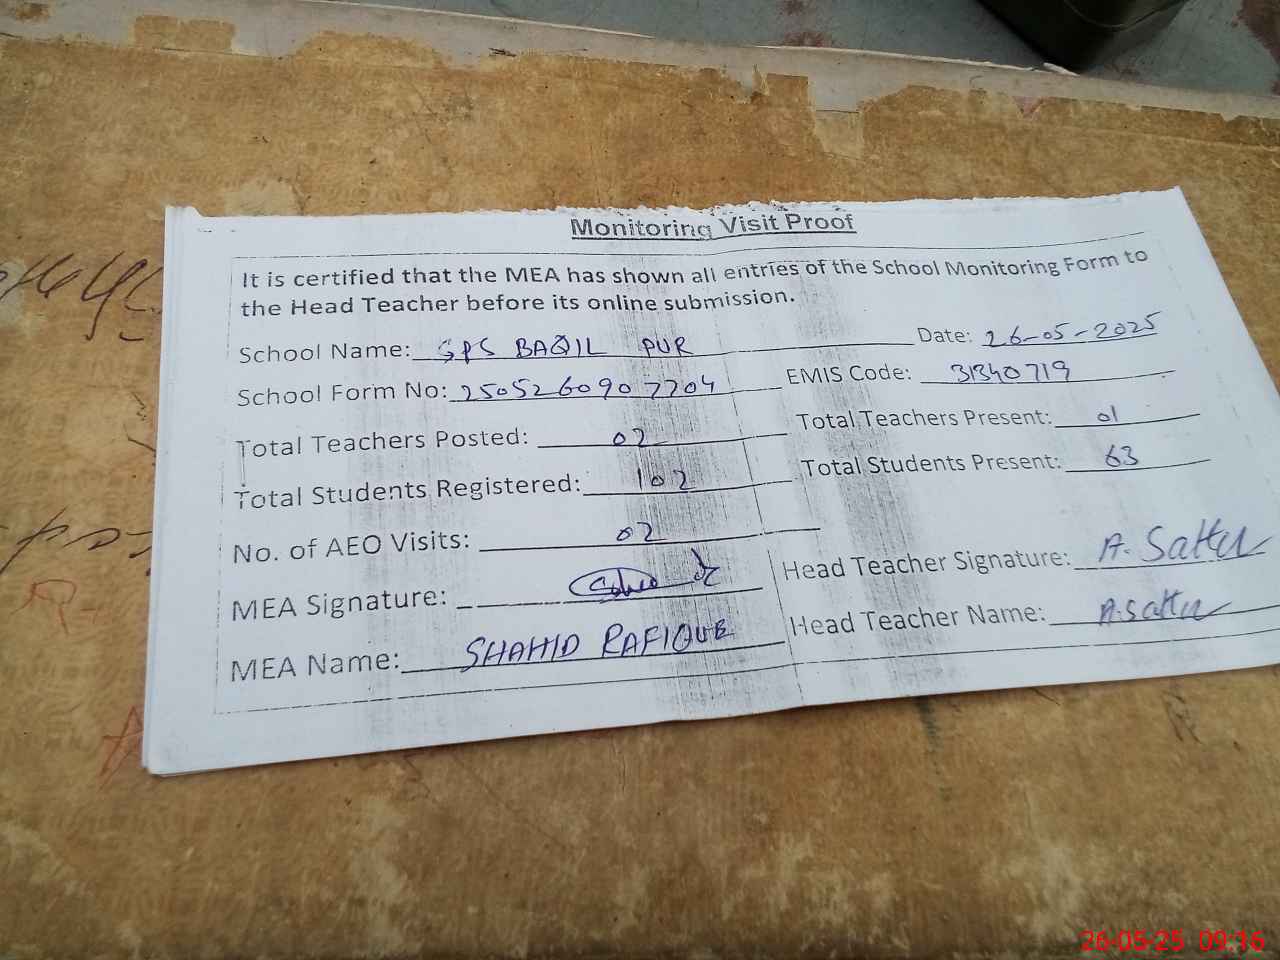 Monitoring Visit Proof
It is certified that the MEA has shown all entries of the School Monitoring Form to
the Head Teacher before its online submission.
School Name: GPS BAQIL PUR Date: 26-05-2025
School Form No: 2505260907704 EMIS Code: 31340719
Total Teachers Posted: 02 Total Teachers Present: 01
Total Students Registered: 102 Total Students Present: 63
No. of AEO Visits: 02
MEA Signature: Head Teacher Signature: A. Sattar
MEA Name: SHAHID RAFIQUE Head Teacher Name: A. Sattar
26-05-25 09:16